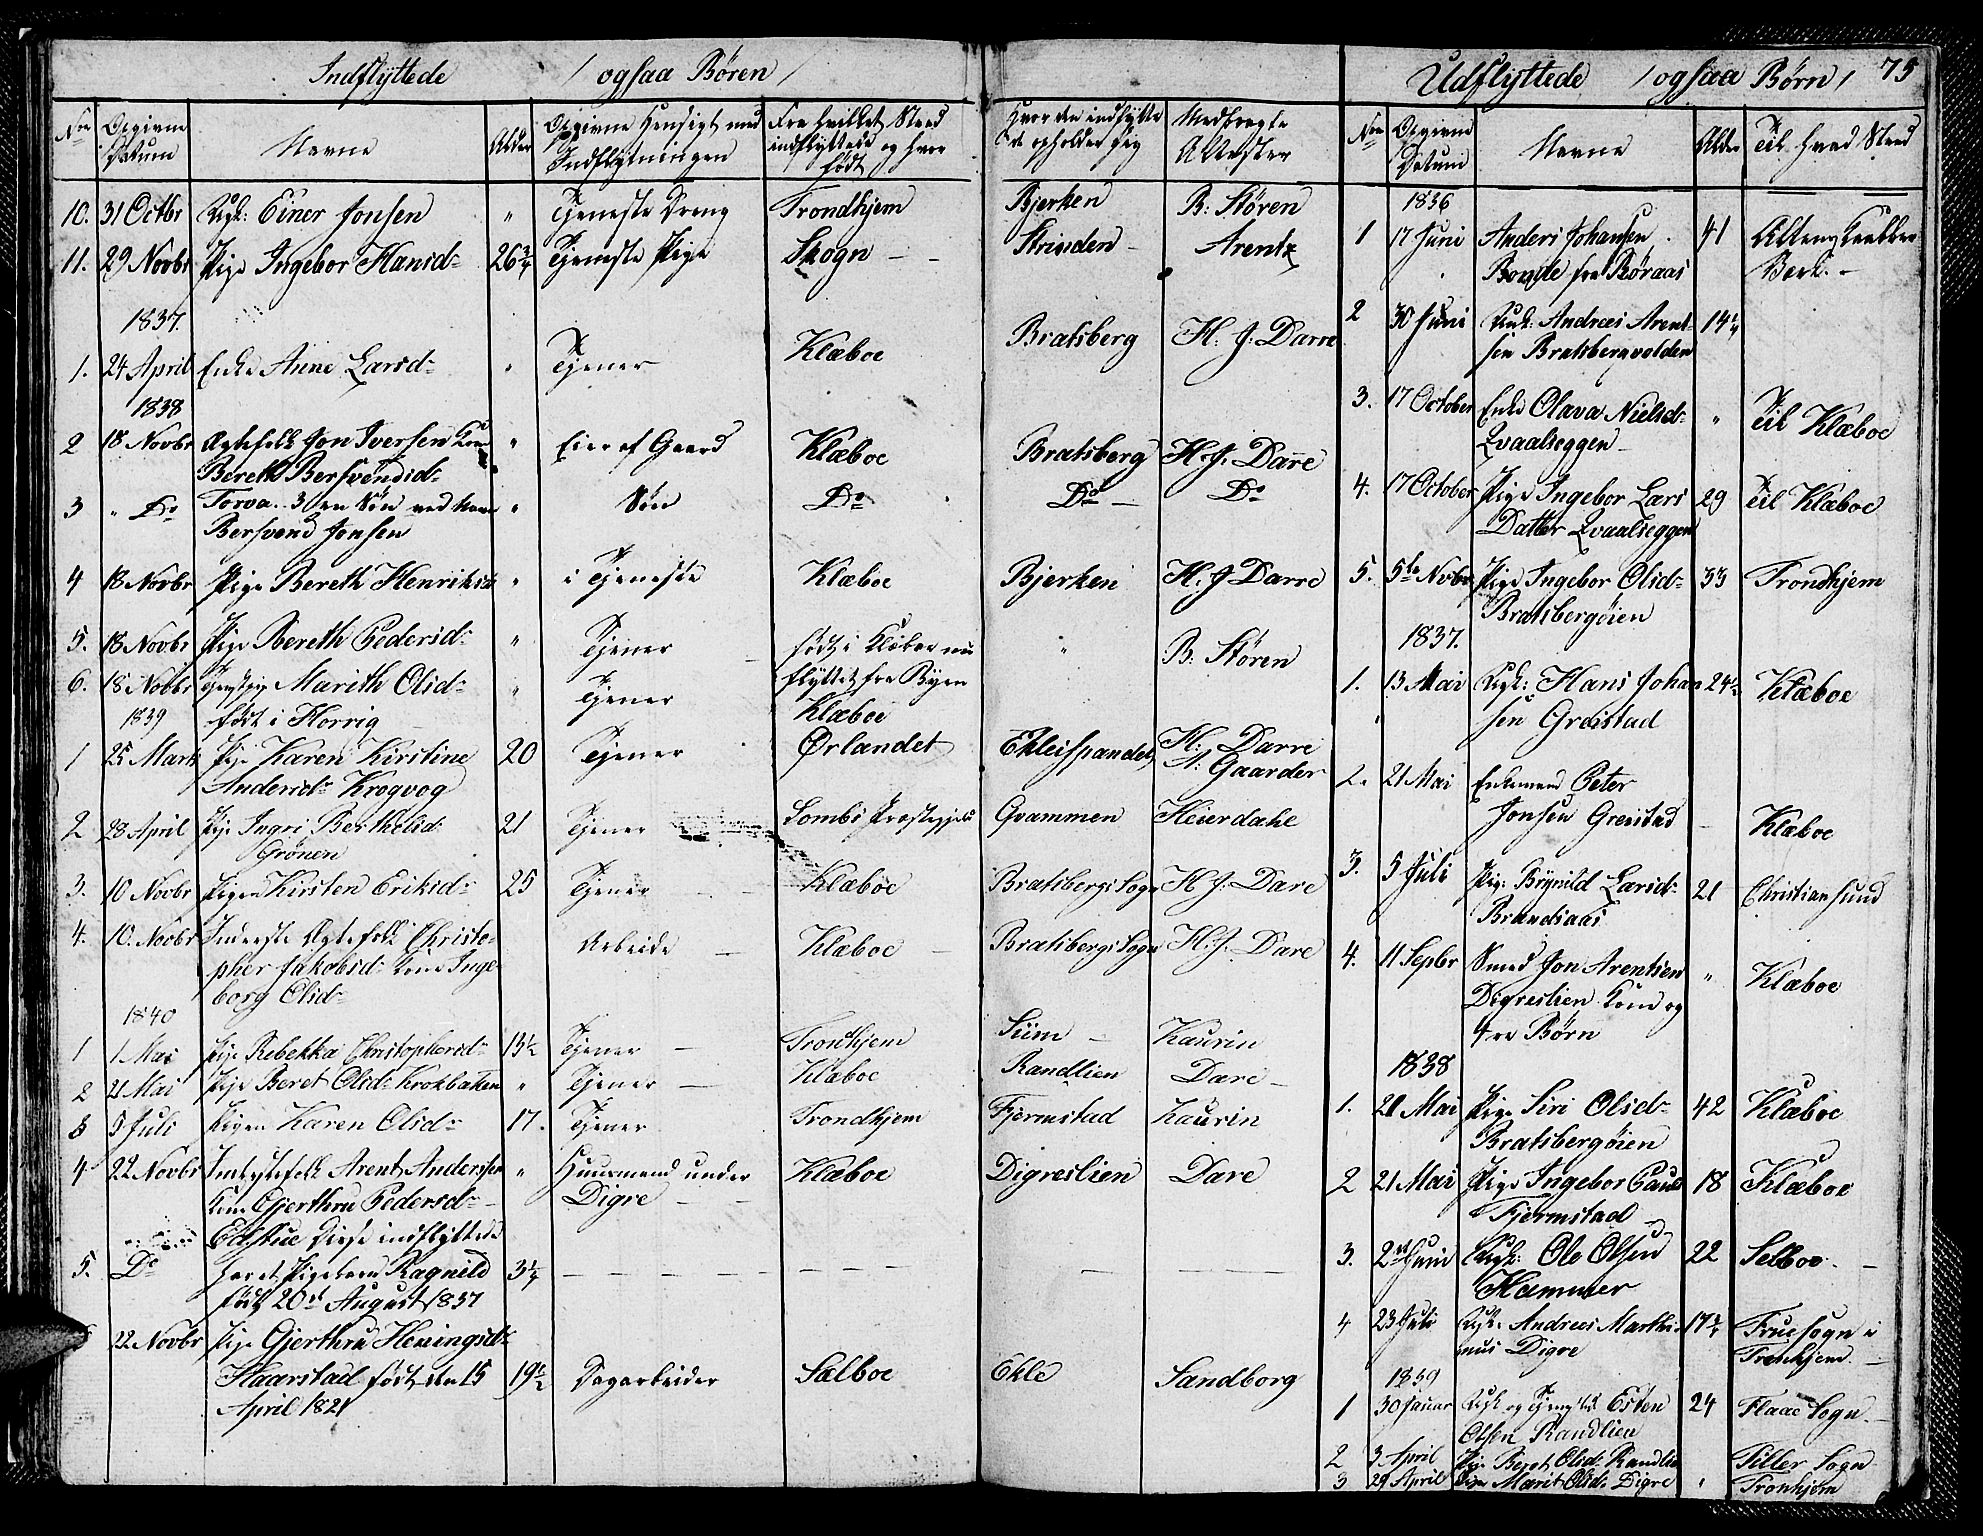 Indflyttede / ogsaa Børen /
No
Opgivne Datum
Navne
Alder
Opgivne Hensigt med Indflytningen
Fra hvilket Sted indflyttede og hvor født
Hvor den indflyttede opholder sig
Medbragte Attester
10. 31 Octbr Ungk: Einer Jonsen " Tjeneste Dreng Trondhjem Bjerken B: Stören
11. 29 Novbr Pige Ingebor Hansd= 26 3/4 Tjeneste Pige Skogn - - Strinden - Arentz
1837.
1. 24 April Enke Anne Larsd= " Tjener Klæboe Bratsberg H. J. Darre
1838
2 18 Novbr Ægtefolk Jon Iversen Kone " Eier af Gaard Klæboe Bratsberg H. J. Darre
Bereth Bersvendsd=
3 " Do Torva. 3 en Søn ved Navn " Søn Do Do - Do
Bersvend Jonsen
4 18 Novbr Pige Bereth Henriksd " i Tjeneste Klæboe Bjerken H. J Darre
5. 18 Novbr Pige Bereth Pedersd= " Tjener født i Klæboe nu " B: Stören
flyttet fra Byen
6. 18 Novbr Marith Olsd= " Tjener Klæboe
1839 født i Horrig
1 25 Marts Pige Karen Kirstine 20 Tjener Ørlandet Ekleispandet H: Darre
Andersd= Krogvog N: Gaarder
2 28 April Pige Ingri Berthelsd 21 Tjener Lombs Præstegjeld Gvammen Heierdahl
Grönen
3. 10 Novbr Pigen Kirsten Eriksd= 25 Tjener Klæboe Bratsbergs Sogn H J. Dare
4. 10. Novbr Inderste Ægtefolk Christo- Arbeide - Klæboe - Bratsbergs Sogn H. J. Dare
pher Jakobsd= Kone Inge-
borg Olsd=
1840
1 1 Mai Pige Rebekka Christophersd= 15½ Tjener - Tronhjem Siim - Kaurin
2 21 Mai Pige Beret Olsd= Krokbaken " Tjener - Klæboe Randlien Dare -
3 5 Juli Pigen Karen Olsd= 17. Tjener Trondhjem Fjermstad Kaurin
4 22 Novbr Arent Anderssen " Huusmand under Klæboe Digreslien Dare
Kone Gjerthru Pedersd= Digre -
Edstue Disse indflyttede
5. Do har et Pigebarn Ragnild 3¼ - - - - - -
født 20de August 1837
22 Novbr Pige Gjerthru Heningsd=
Haarstad født den 15 19½ Dagarbeider Sælboe Ekle Sandborg
April 1821
Udflyttede / ogsaa Børn / 75
No
Opgivne Datum
Navne
Alder
Til hvad Sted
1836
1 17 Juni Anders Johansen 41 Altens Kaabber
Bonde fra Børaas Værk. -
2 30 Juni Ungk: Andreas Arent- 14¼
sen Bratsbergvolden
3. 17 October Enke Olava Nielsd= " Til Klæboe
Qvaalseggen -
4. 17 October Pige Ingebor Lars 29 Til Klæboe
Datter Qvaalseggen
5. 5te Novbr Pige Ingebor Olsd= 33 Trondhjem
Bratsbergøien
1837.
1. 13 Mai Ungk: Hans Johan 24½ Klæboe
sen Greistad
2. 21 Mai Enkemand Peter
Jonsen Greistad - Klæboe
3. 5 Juli Pige Brynild Larsd= 21 Christiansund
Brandsaas
4. 11 Sepbr Smed Jon Arentsen " Klæboe
Digreslien Kone og
4re Børn
1838
1. 21 Mai Pige Siri Olsd= 42 Klæboe
Bratsbergøien
2 21 Mai Pige Ingebor Pauls 18 Klæboe
Fjermstad
3. 2den Juni Ungk: Ole Olsen 22 Selboe. -
Hammer
4 23 Juli Ungk: Andreas Marthi- 17¾ Frue Sogn i
nus Digre Tronhjem. -
1839
1 30 Januar Ungk og Esten 24 Flaae Sogn. -
Olsen Randlien
2 3 April Pige Beret Olsd= Randlie Tiller Sogn
3 29 April Pige Marit Olsd= Digre " Tronhjem